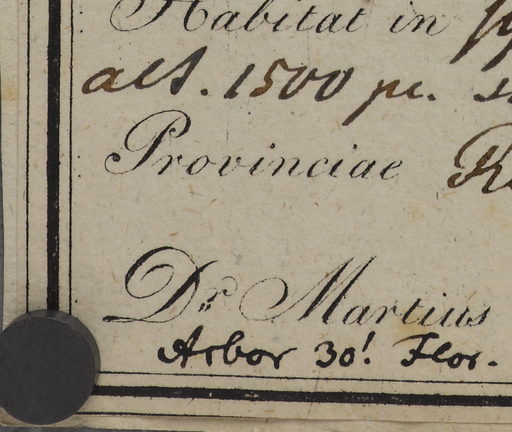 Habitat in
alt. 1500 pe.
Provinciae
Dr. Martius
Arbor 30'. Flor.